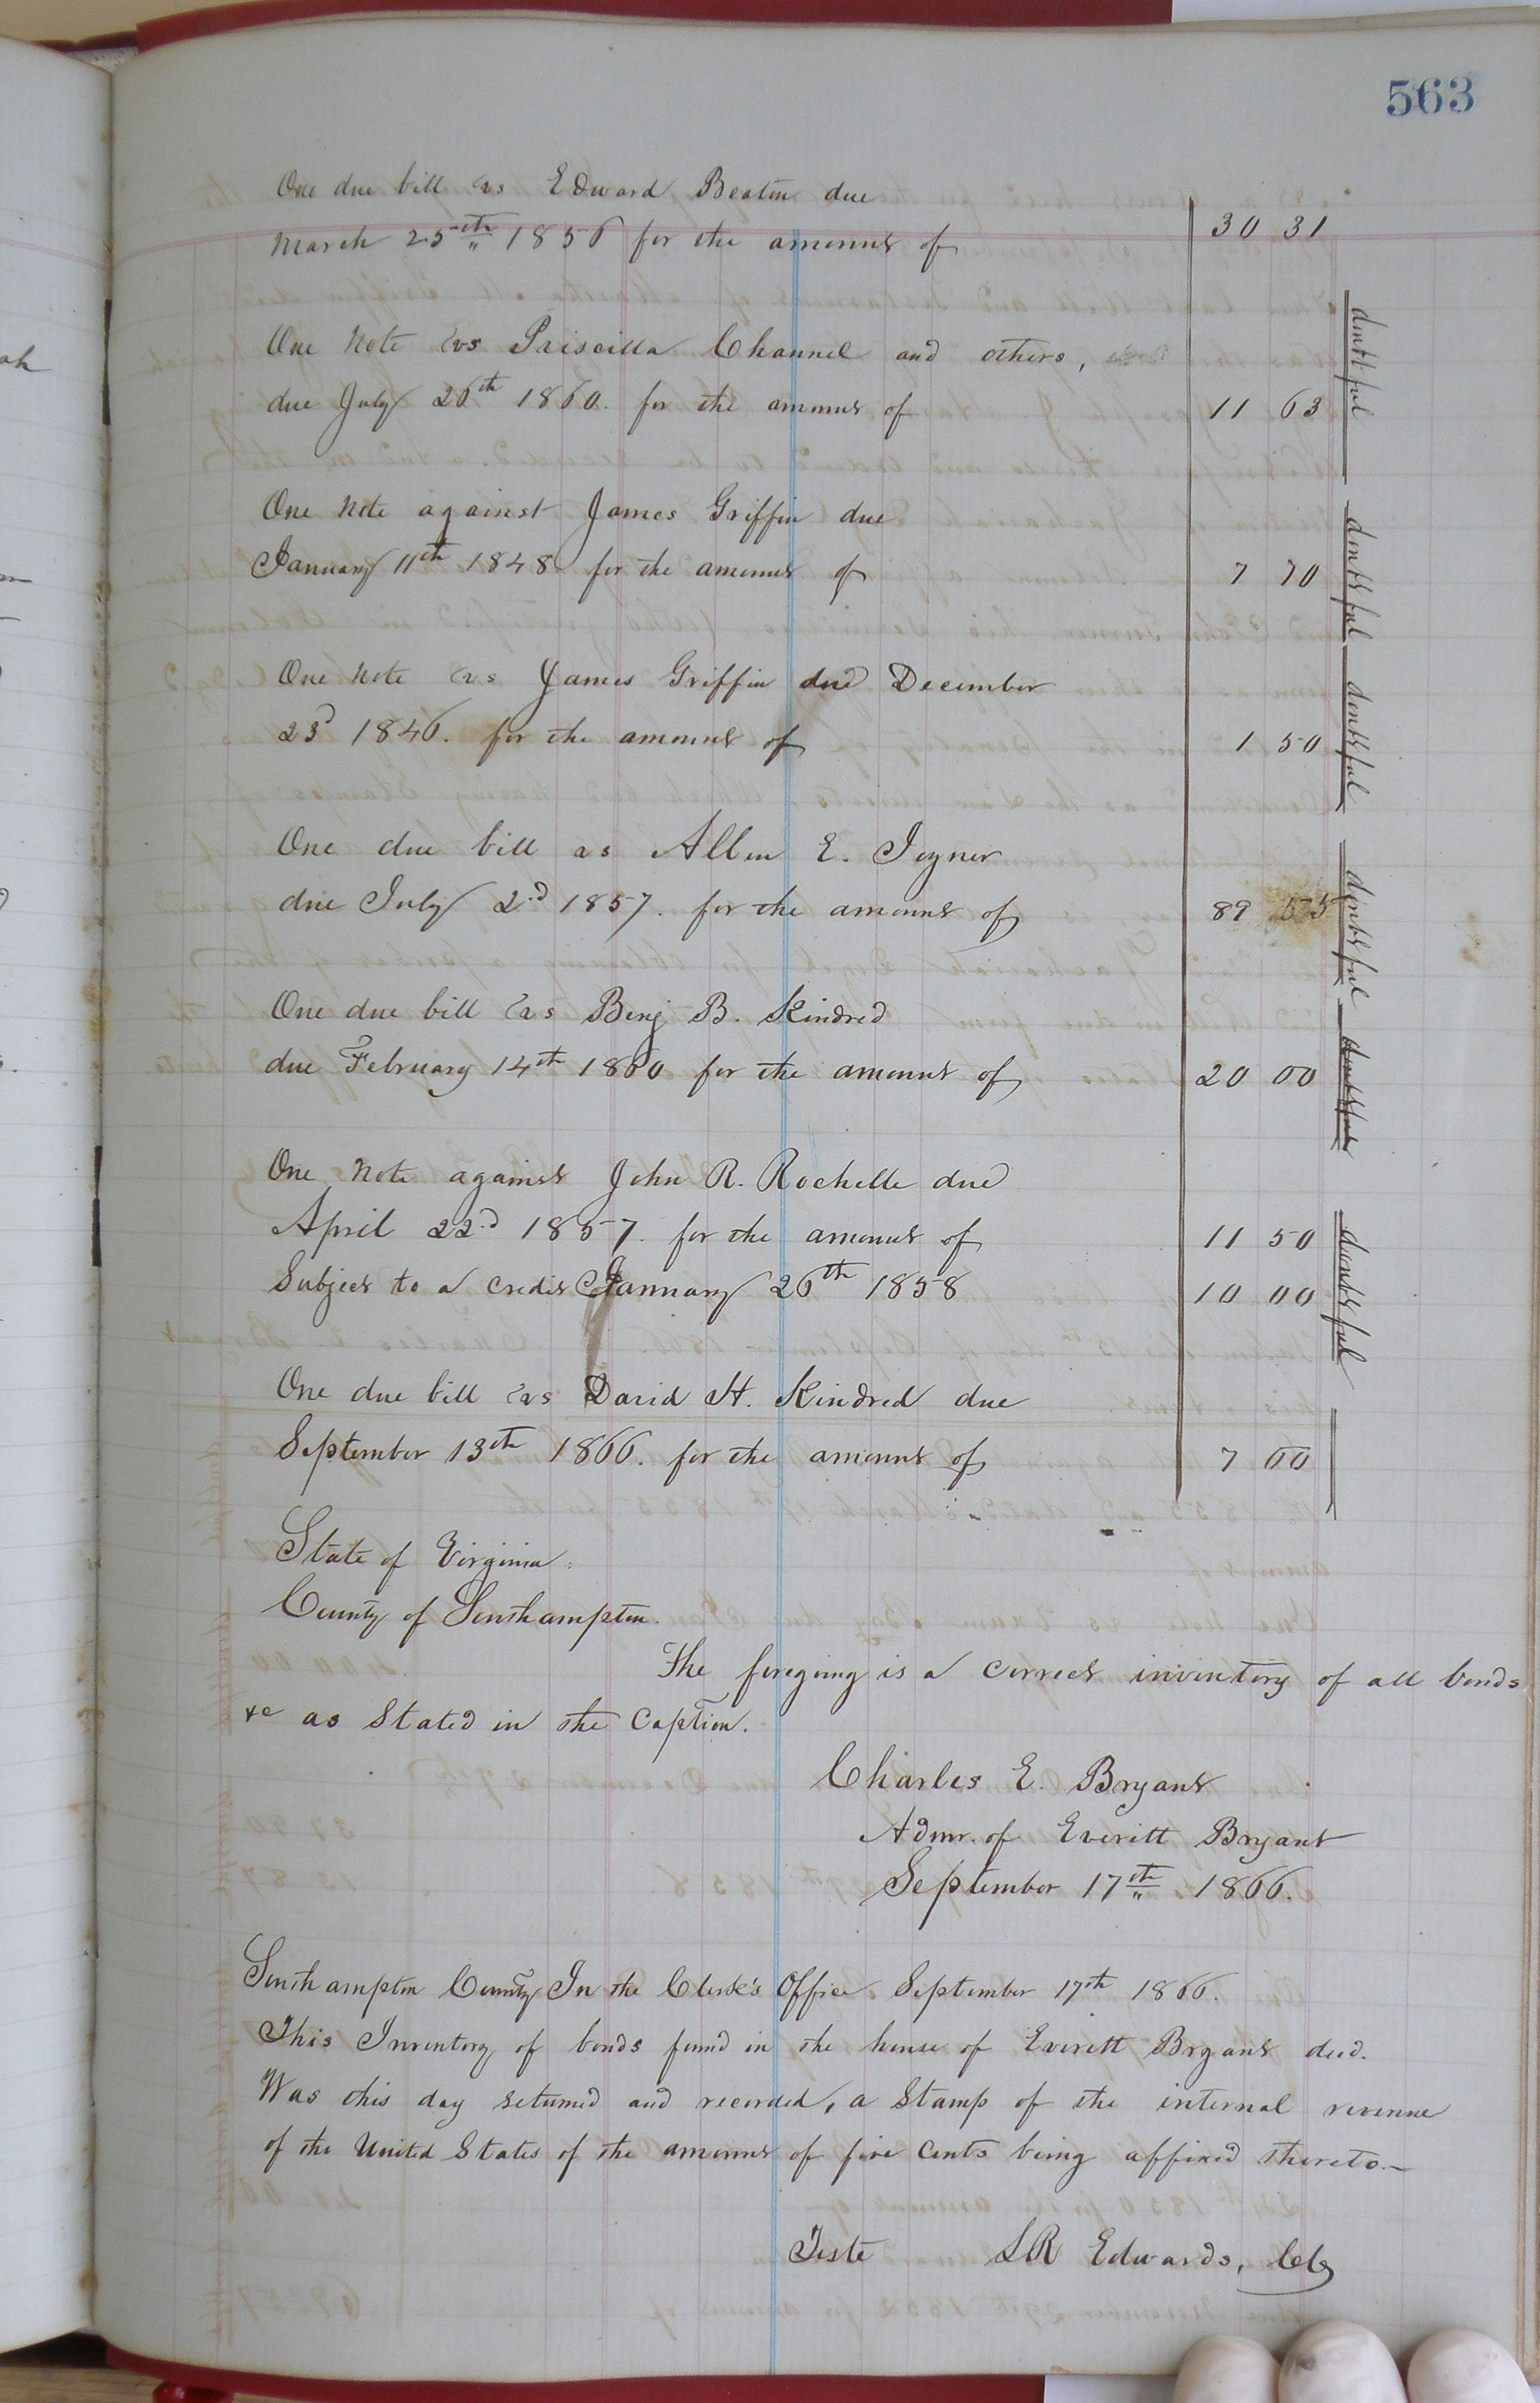 563
One due bill vs Edward Beaton due
March 25th 1856 for the amount of 30 31
One Note vs Priscilla Channel and others,
due July 26th 1860. for the amount of 11 63
doubtful
One Note against James Griffin due
January 11th 1848 for the amount of 7 70
doubtful
One Note vs James Griffin due December
23d 1846. for the amount of 1 50
doubtful
One due bill vs Allen E. Joyner
due July 2d 1857. for the amount of 89 55
doubtful
One due bill vs Benj B. Kindred
due February 14th 1860 for the amount of 20 00
doubtful
One Note against John R. Rochelle due
April 22d 1857. for the amount of 11 50
Subject to a credit January 26th 1858 10 00
doubtful
One due bill vs David H. Kindred due
September 13th 1866. for the amount of 7 00
State of Virginia
County of Southampton.
The foregoing is a correct inventory of all bonds
&c as Stated in the Caption.
Charles E. Bryant
Admr. of Everitt Bryant
September 17th 1866.
Southampton County In the Clerk's Office September 17th 1866.
This Inventory of bonds found in the house of Everett Bryant decd.
Was this day returned and recorded, a Stamp of the internal revenue
of the United States of the amount of five Cents being affixed thereto.—
Teste LR Edwards, Clk